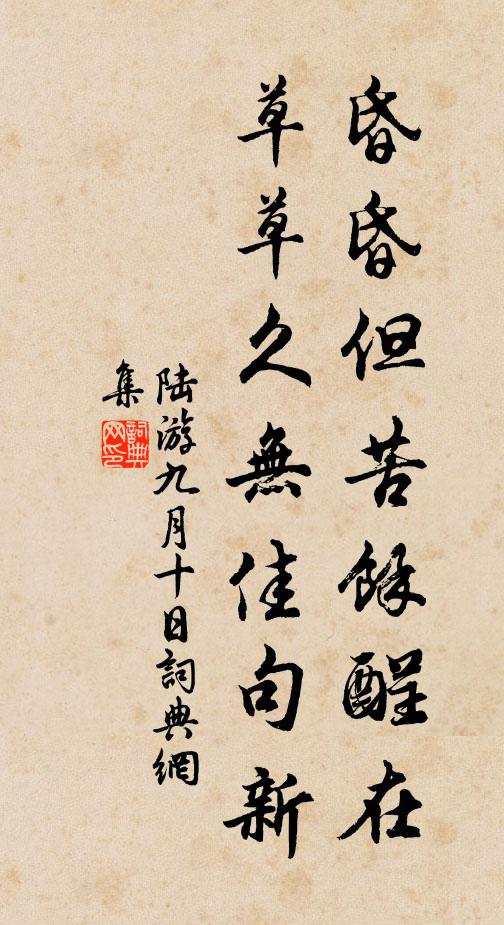 昏昏但苦餘酲在
草草久無佳句新
陆游九月十日詞典網
集
詞典
网印